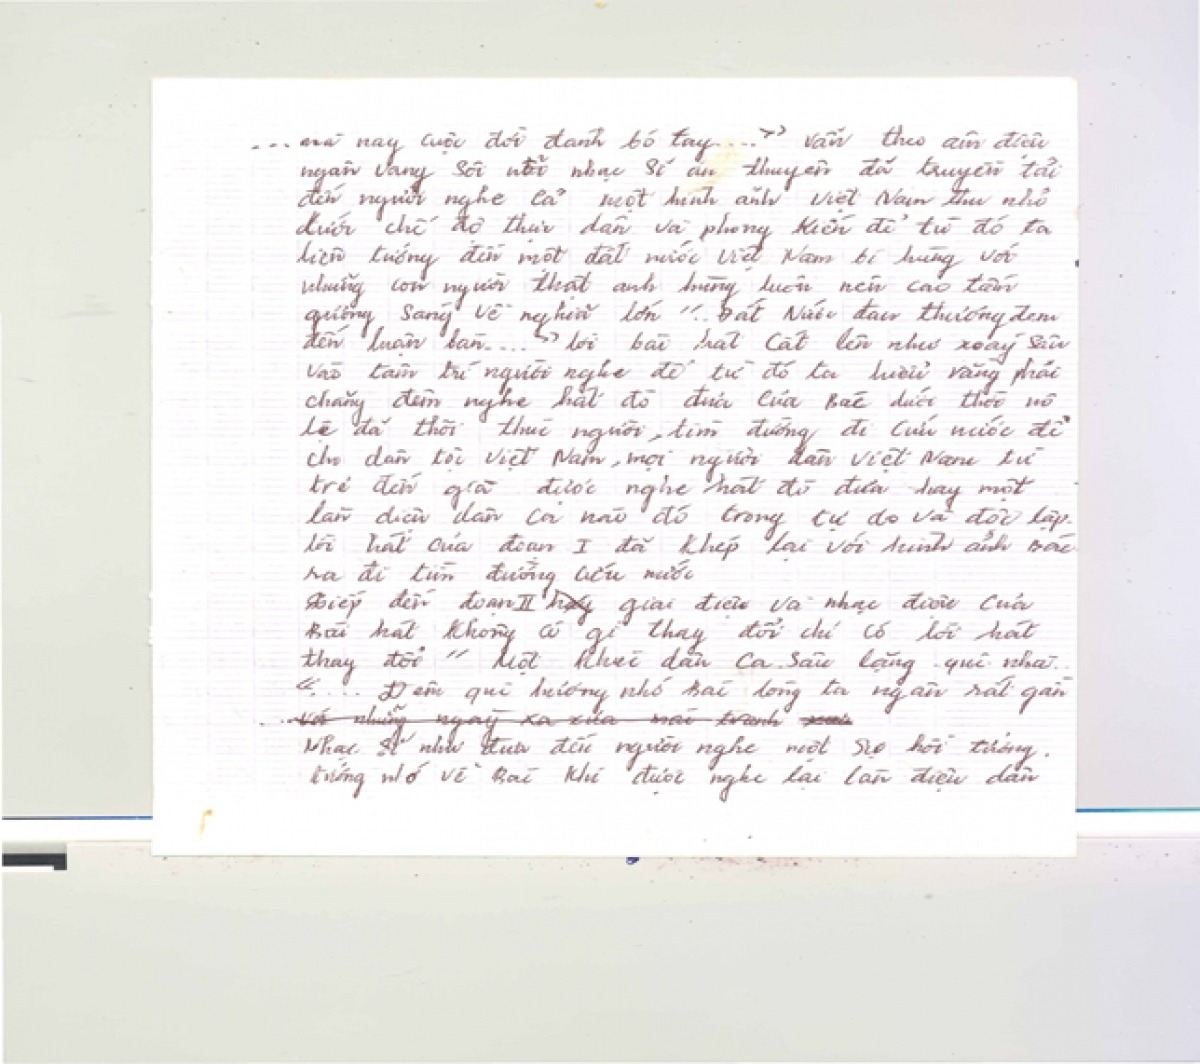 ...mà nay cuộc đời đành bó tay....” vẫn theo âm điệu
ngân vang sôi nổi nhạc sĩ An Thuyên đã truyền tải
đến người nghe cả một hình ảnh Việt Nam thu nhỏ
dưới chế độ thực dân và phong kiến để từ đó ta
liên tưởng đến một đất nước Việt Nam bi hùng với
những con người thật anh hùng luôn nên cao tấm
gương sáng về nghĩa lớn “.. Đất Nước đau thương đem
đến luận bàn....” lời bài hát cất lên như xoáy sâu
vào tâm trí người nghe để từ đó ta hiểu rằng phải
chăng đêm nghe hát đò đưa của Bác dưới thời nô
lệ đã thôi thúc người, tìm đường đi cứu nước để
cho dân tộc Việt Nam, mọi người dân Việt Nam từ
trẻ đến già được nghe hát đò đưa hay một
làn điệu dân ca nào đó trong tự do và độc lập.
lời hát của đoạn I đã khép lại với hình ảnh Bác
ra đi tìm đường cứu nước
Tiếp đến đoạn II giai điệu và nhạc điệu của
Bài hát không có gì thay đổi chỉ có lời hát
thay đổi “ Một khúc dân ca sâu lặng quê nhà..
“.... Đêm quê hương nhớ Bác lòng ta ngân rất gần
...với những ngày xa xưa mái tranh xưa
Nhạc sĩ như đưa đến người nghe một sự hồi tưởng.
tưởng nhớ về Bác khi được nghe lại làn điệu dân